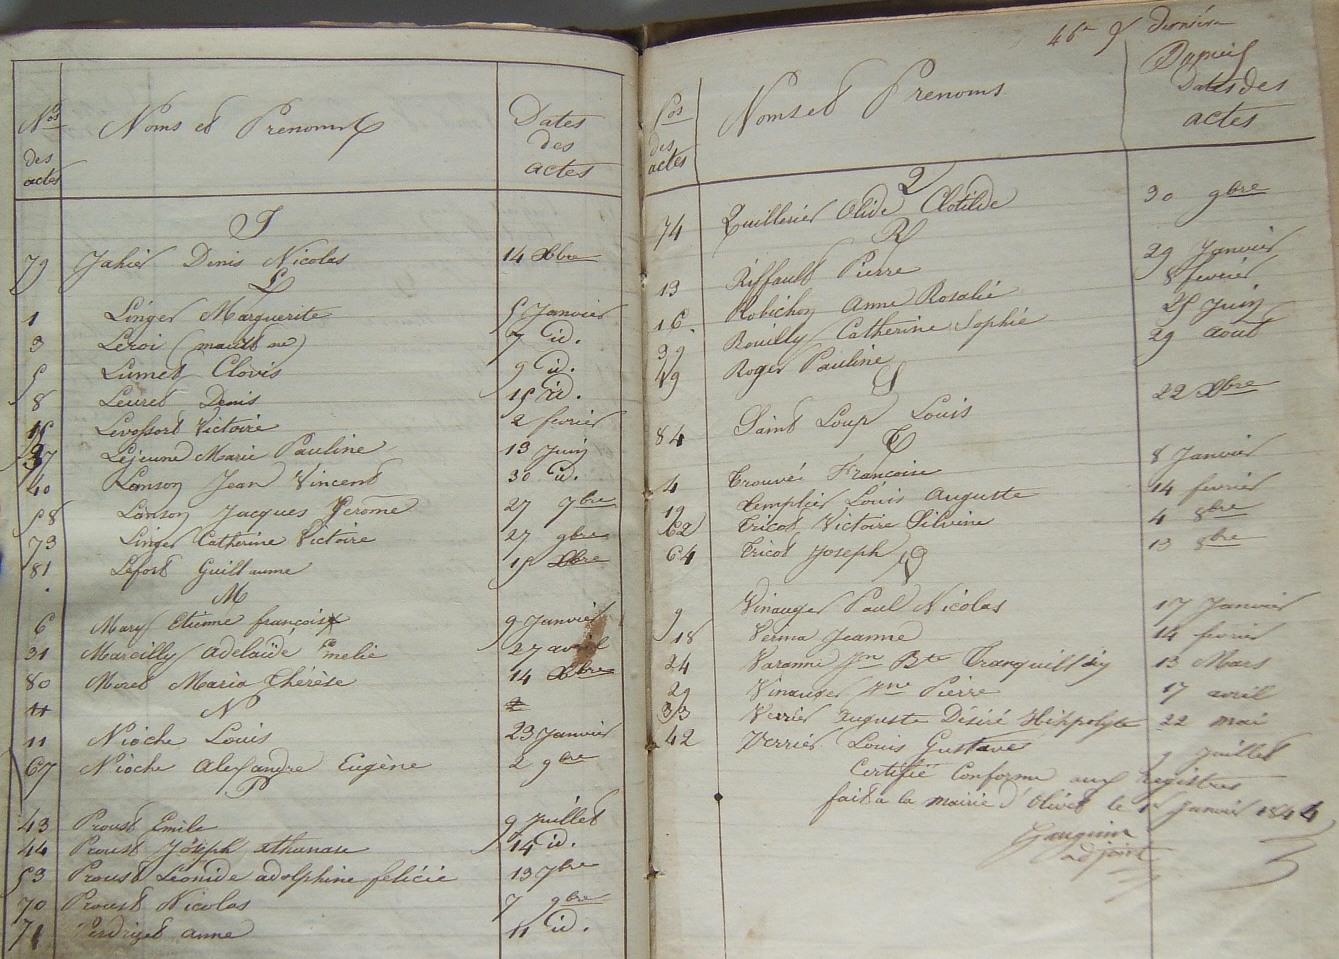 Nos
des
actes
Noms et Prenoms
Dates
des
actes
J
79 Jahier Denis Nicolas 14 Xbre
L
1 Linger Marguerite 5 Janvier
3 Leroi (maest ne) 7 id.
5 Lumet Clovis 9 id.
8 Leuret Denis 15 id.
15 Levossort Victoire 2 fevrier
37 Lejeune Marie Pauline 13 Juin
40 Lanson Jean Vincent 30 id.
58 Lanson Jacques Jerome 27 7bre
73 Linger Catherine Victoire 27 9bre
81 Lefort Guillaume 15 Xbre
M
6 Mary Etienne françois 9 Janvier
31 Marcilly adelaïde Emelie 27 avril
80 Moret Maria thérèse 14 Xbre
N
11 Nioche Louis 23 Janvier
67 Nioche alexandre Eugène 2 9bre
P
43 Proust Emile 9 Juillet
44 Proust Joseph athanase 14 id.
53 Proust Léonide adolphine félicie 13 7bre
70 Proust Nicolas 7 9bre
71 Perdrizet anne 11 id.
46e et dernière
Dapuis
Nos
des
actes
Noms et Prenoms
Dates des
actes
Q
74 Quillerier Olide Clotilde 30 9bre
R
13 Riffault Pierre 29 Janvier
16 Robichon Anne Rosalie 8 fevrier
39 Rouilly Catherine Sophie 25 Juin
49 Roger Pauline 29 aout
S
84 Saint Loup Louis 22 Xbre
T
4 Trouvé Françoise 8 Janvier
19 templier Louis Auguste 14 fevrier
62 Tricot Victoire Silvine 4 8bre
64 Tricot Joseph 13 8bre
V
9 Vinauger Paul Nicolas 17 Janvier
18 Verma Jeanne 14 fevrier
24 Varanne Jn Bte Tranquillin 13 Mars
29 Vinauger Jne Pierre 17 avril
33 Verrier Auguste Désiré Hippolyte 22 mai
42 Verrier Louis Gustave 9 Juillet
Certifié Conforme aux Registres
fait a la mairie d'Olivet le 1er Janvier 1844
adjoint